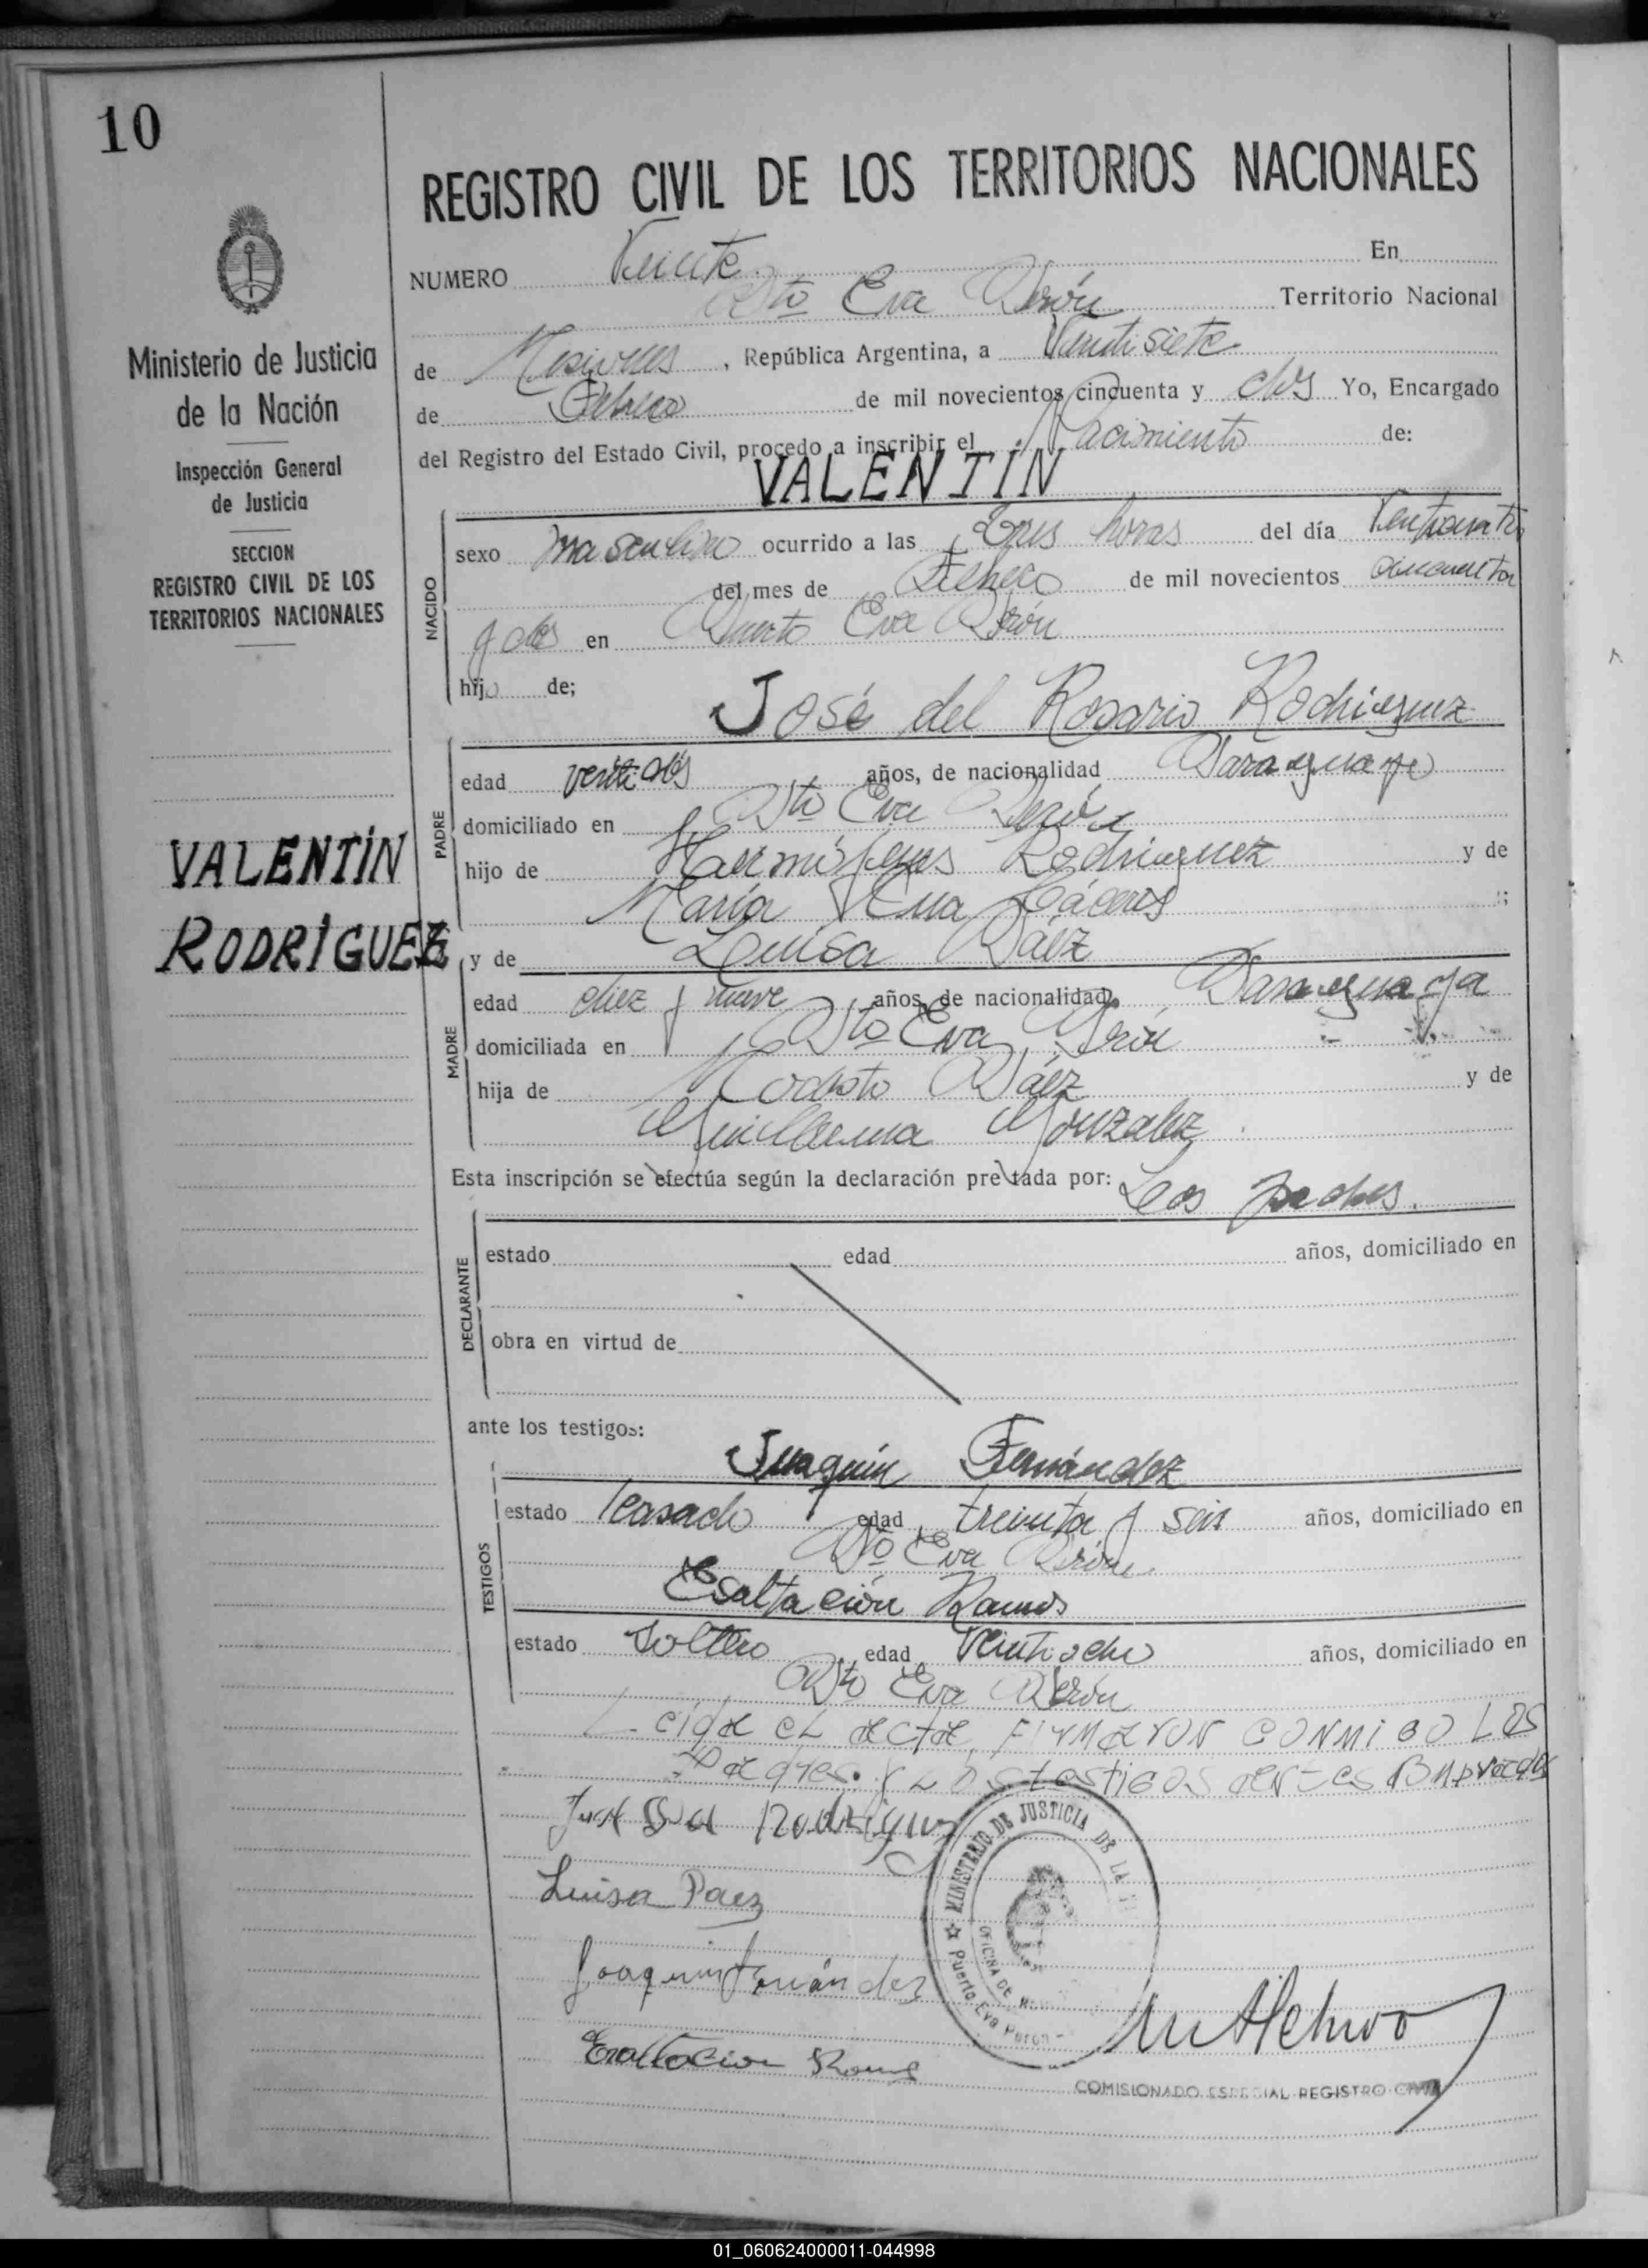 10
REGISTRO CIVIL DE LOS TERRITORIOS NACIONALES
Ministerio de Justicia
de la Nación
Inspección General
de Justicia
SECCION
REGISTRO CIVIL DE LOS
TERRITORIOS NACIONALES
VALENTÍN
RODRÍGUEZ
NUMERO Veinte En
Pto Eva Perón Territorio Nacional
de Misiones , República Argentina, a Veintisiete
de Febrero de mil novecientos cincuenta y dos Yo, Encargado
del Registro del Estado Civil, procedo a inscribir el Nacimiento de:
VALENTÍN
NACIDO
sexo masculino ocurrido a las tres horas del día
del mes de Febrero de mil novecientos cincuenta
y dos en Puerto Eva Perón
hijo de;
José del Rosario Rodriguez
PADRE
edad años, de nacionalidad Paraguayo
domiciliado en Pto Eva Perón
hijo de Rodriguez y de
María Cáceres ;
y de Luisa Páez
MADRE
edad diez y nueve años, de nacionalidad Paraguaya
domiciliada en Pto Eva Perón
hija de Modesto Páez y de
Guillerma Gonzalez
Esta inscripción se efectúa según la declaración pre tada por: Los padres.
DECLARANTE
estado edad años, domiciliado en
obra en virtud de
ante los testigos:
Juaquín Fernández
TESTIGOS
estado casado edad treinta y seis años, domiciliado en
Pto Eva Perón
Esaltación Ramos
estado soltero edad Veintiocho años, domiciliado en
Pto Eva Perón
Leida el acta, FirmaroN CONMIGO LOS
Padres y Los testigos
Rodriguez
Luisa Paez
Joaquin Fernández
MINISTERIO DE JUSTICIA DE LA
OFICINA DE
Puerto Eva Perón
COMISIONADO ESPECIAL REGISTRO CIVIL
01_060624000011-044998